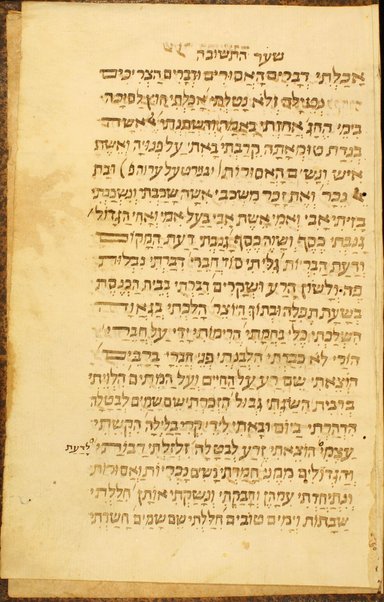 שער התשובה
אכלתי דברים האסורים ודברים הצריכים
נטילה ולא נטלתי אכלתי חוץ לסוכה
בימי החג אחזתי באמה והשתנתי אשה
בנדת טומאתה קרבתי באתי על פנויה ואשת
איש ונשים האסורות ובת
נכר ואת זכר משכבי אשה שכבתי ונשכבתי
בזיתי אבי ואמי אשת אבי בעל אמי ואחי הגדול
גנבתי כסף ושוה כסף גנבתי דעת המקום
ודעת הבריות גליתי סוד חברי דברתי נבלות
פה ולשון הרע ושקרים דברתי בבית הכנסת
בשעת תפלה ובתוך היוצר הלכתי בגאוה
השלכתי כלי בחמתי הרימותי ידי על חברי
הורי לא כבדתי הלבנתי פני חברי ברבים
הוצאתי שם רע על החיים ועל המתים הלויתי
ברבית השגתי גבול הזכרתי שם שמים לבטלה
הרהרתי ביום ובאתי לידי קרי בלילה הקשתי
עצמי הוצאתי זרע לבטלה זלזלתי דבורתי לדעת
והגדולים ממני חמדתי נשים נכריות ואסורות
ונתיחדתי עמהן וחבקתי ונשקתי אותן חללתי
שבתות וימים טובים חללתי שם שמים חשדתי